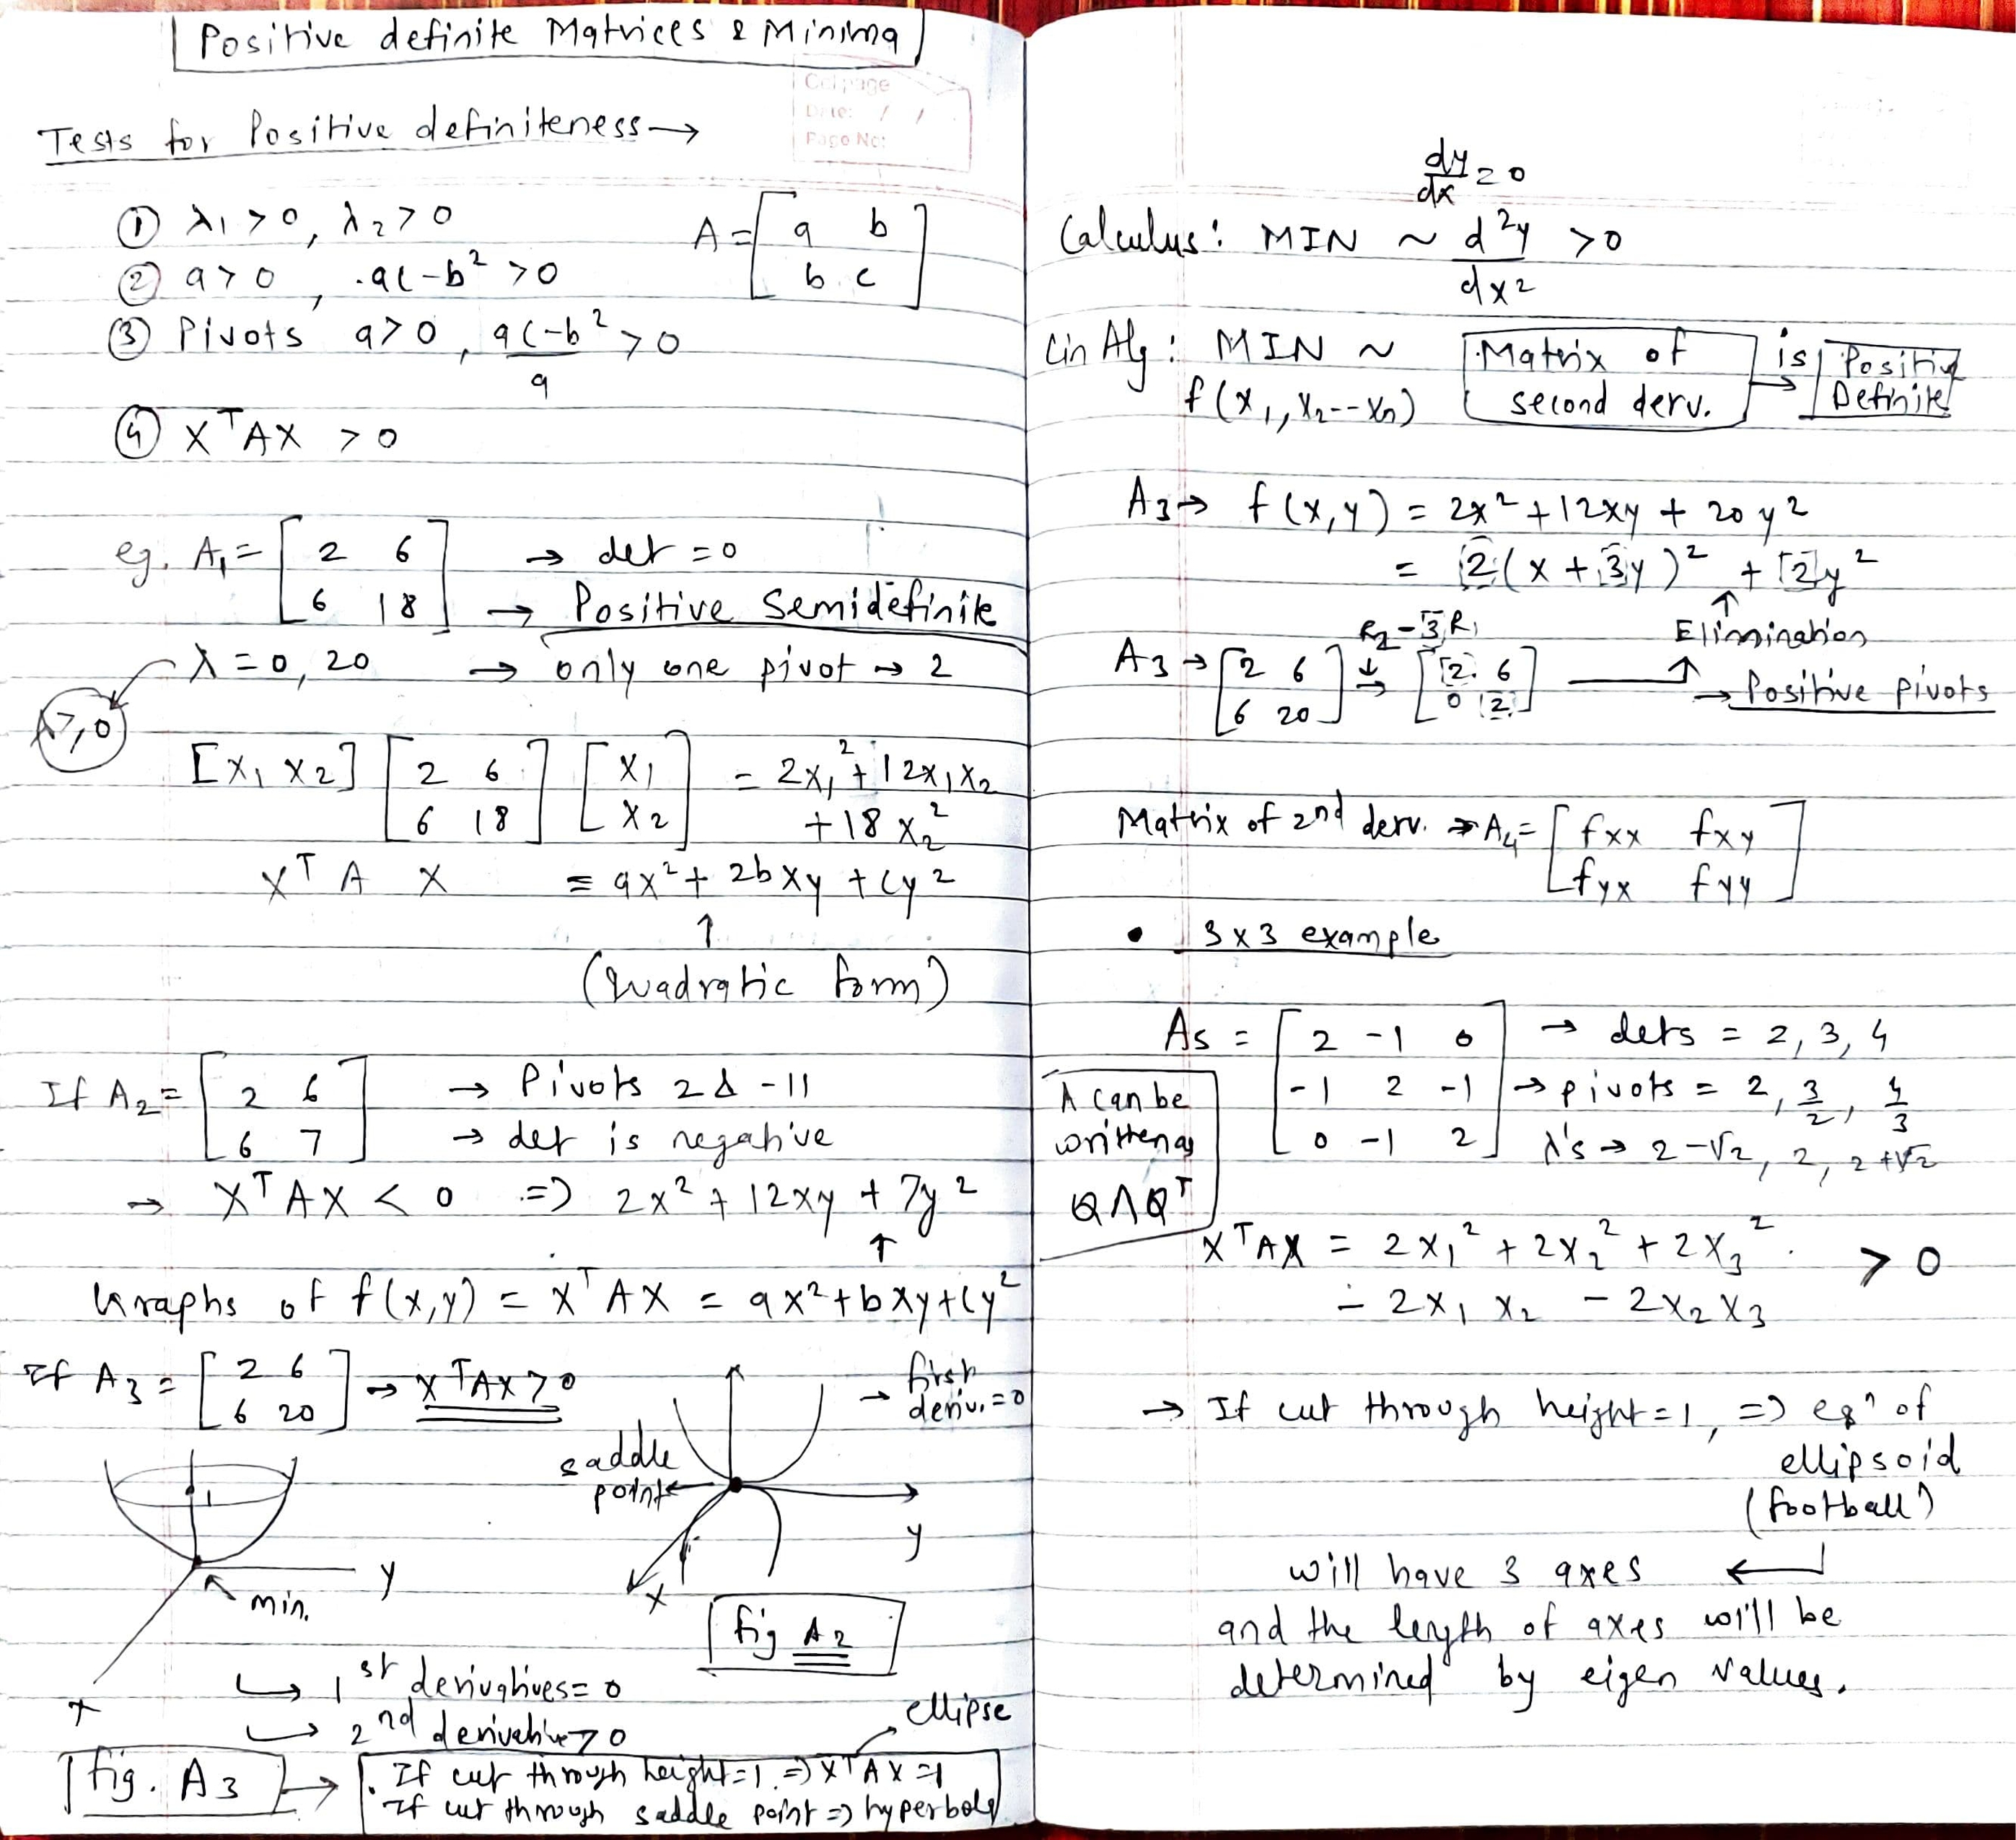 Positive definite Matrices & Minima
Page No:
Tests for Positive definiteness →
① λ₁ > 0, λ₂ > 0
A = [a b; b c]
② a > 0, ac-b² > 0
③ Pivots a > 0, (ac-b²)/a > 0
④ XᵀAX > 0
eg. A₁ = [2 6; 6 18] → det = 0
→ Positive Semidefinite
λ = 0, 20 → only one pivot → 2
λ ≥, 0
[x₁ x₂] [2 6; 6 18] [x₁; x₂] = 2x₁² + 12x₁x₂
+ 18x₂²
Xᵀ A X = ax² + 2bxy + cy²
↑
(Quadratic form)
If A₂ = [2 6; 6 7] → Pivots 2 & -11
→ det is negative
→ XᵀAX < 0 => 2x² + 12xy + 7y²
↑
Graphs of f(x,y) = XᵀAX = ax²+bxy+cy²
If A₃ = [2 6; 6 20] → XᵀAX > 0
→ first
deriv. = 0
saddle
point
y
x
1
y
min.
x
fig A2
↳ 1st derivatives = 0
↳ 2nd derivative > 0
ellipse
fig. A3 →
. If cut through height=1. => XᵀAX = 1
. If cut through saddle point => hyperbola
dy/dx = 0
Calculus: MIN ~ d²y/dx² > 0
Lin Alg: MIN ~ Matrix of second derv. is → Positive Definite
f(x₁, x₂--xₙ)
A₃→ f(x,y) = 2x² + 12xy + 20y²
= 2(x + 3y)² + 2y²
↑
Elimination
R₂ - 3R₁
A₃ → [2 6; 6 20] → [2 6; 0 2] → Positive pivots
Matrix of 2nd derv. → A₄ = [fxx fxy; fyx fyy]
• 3x3 example
A5 = [2 -1 0; -1 2 -1; 0 -1 2] → dets = 2, 3, 4
→ pivots = 2, 3/2, 4/3
λ's → 2-√2, 2, 2+√2
A can be
written as
QΛQᵀ
XᵀAX = 2x₁² + 2x₂² + 2x₃²
- 2x₁x₂ - 2x₂x₃ > 0
→ If cut through height=1, => eqⁿ of
ellipsoid
(football)
will have 3 axes ←
and the length of axes will be
determined by eigen values.